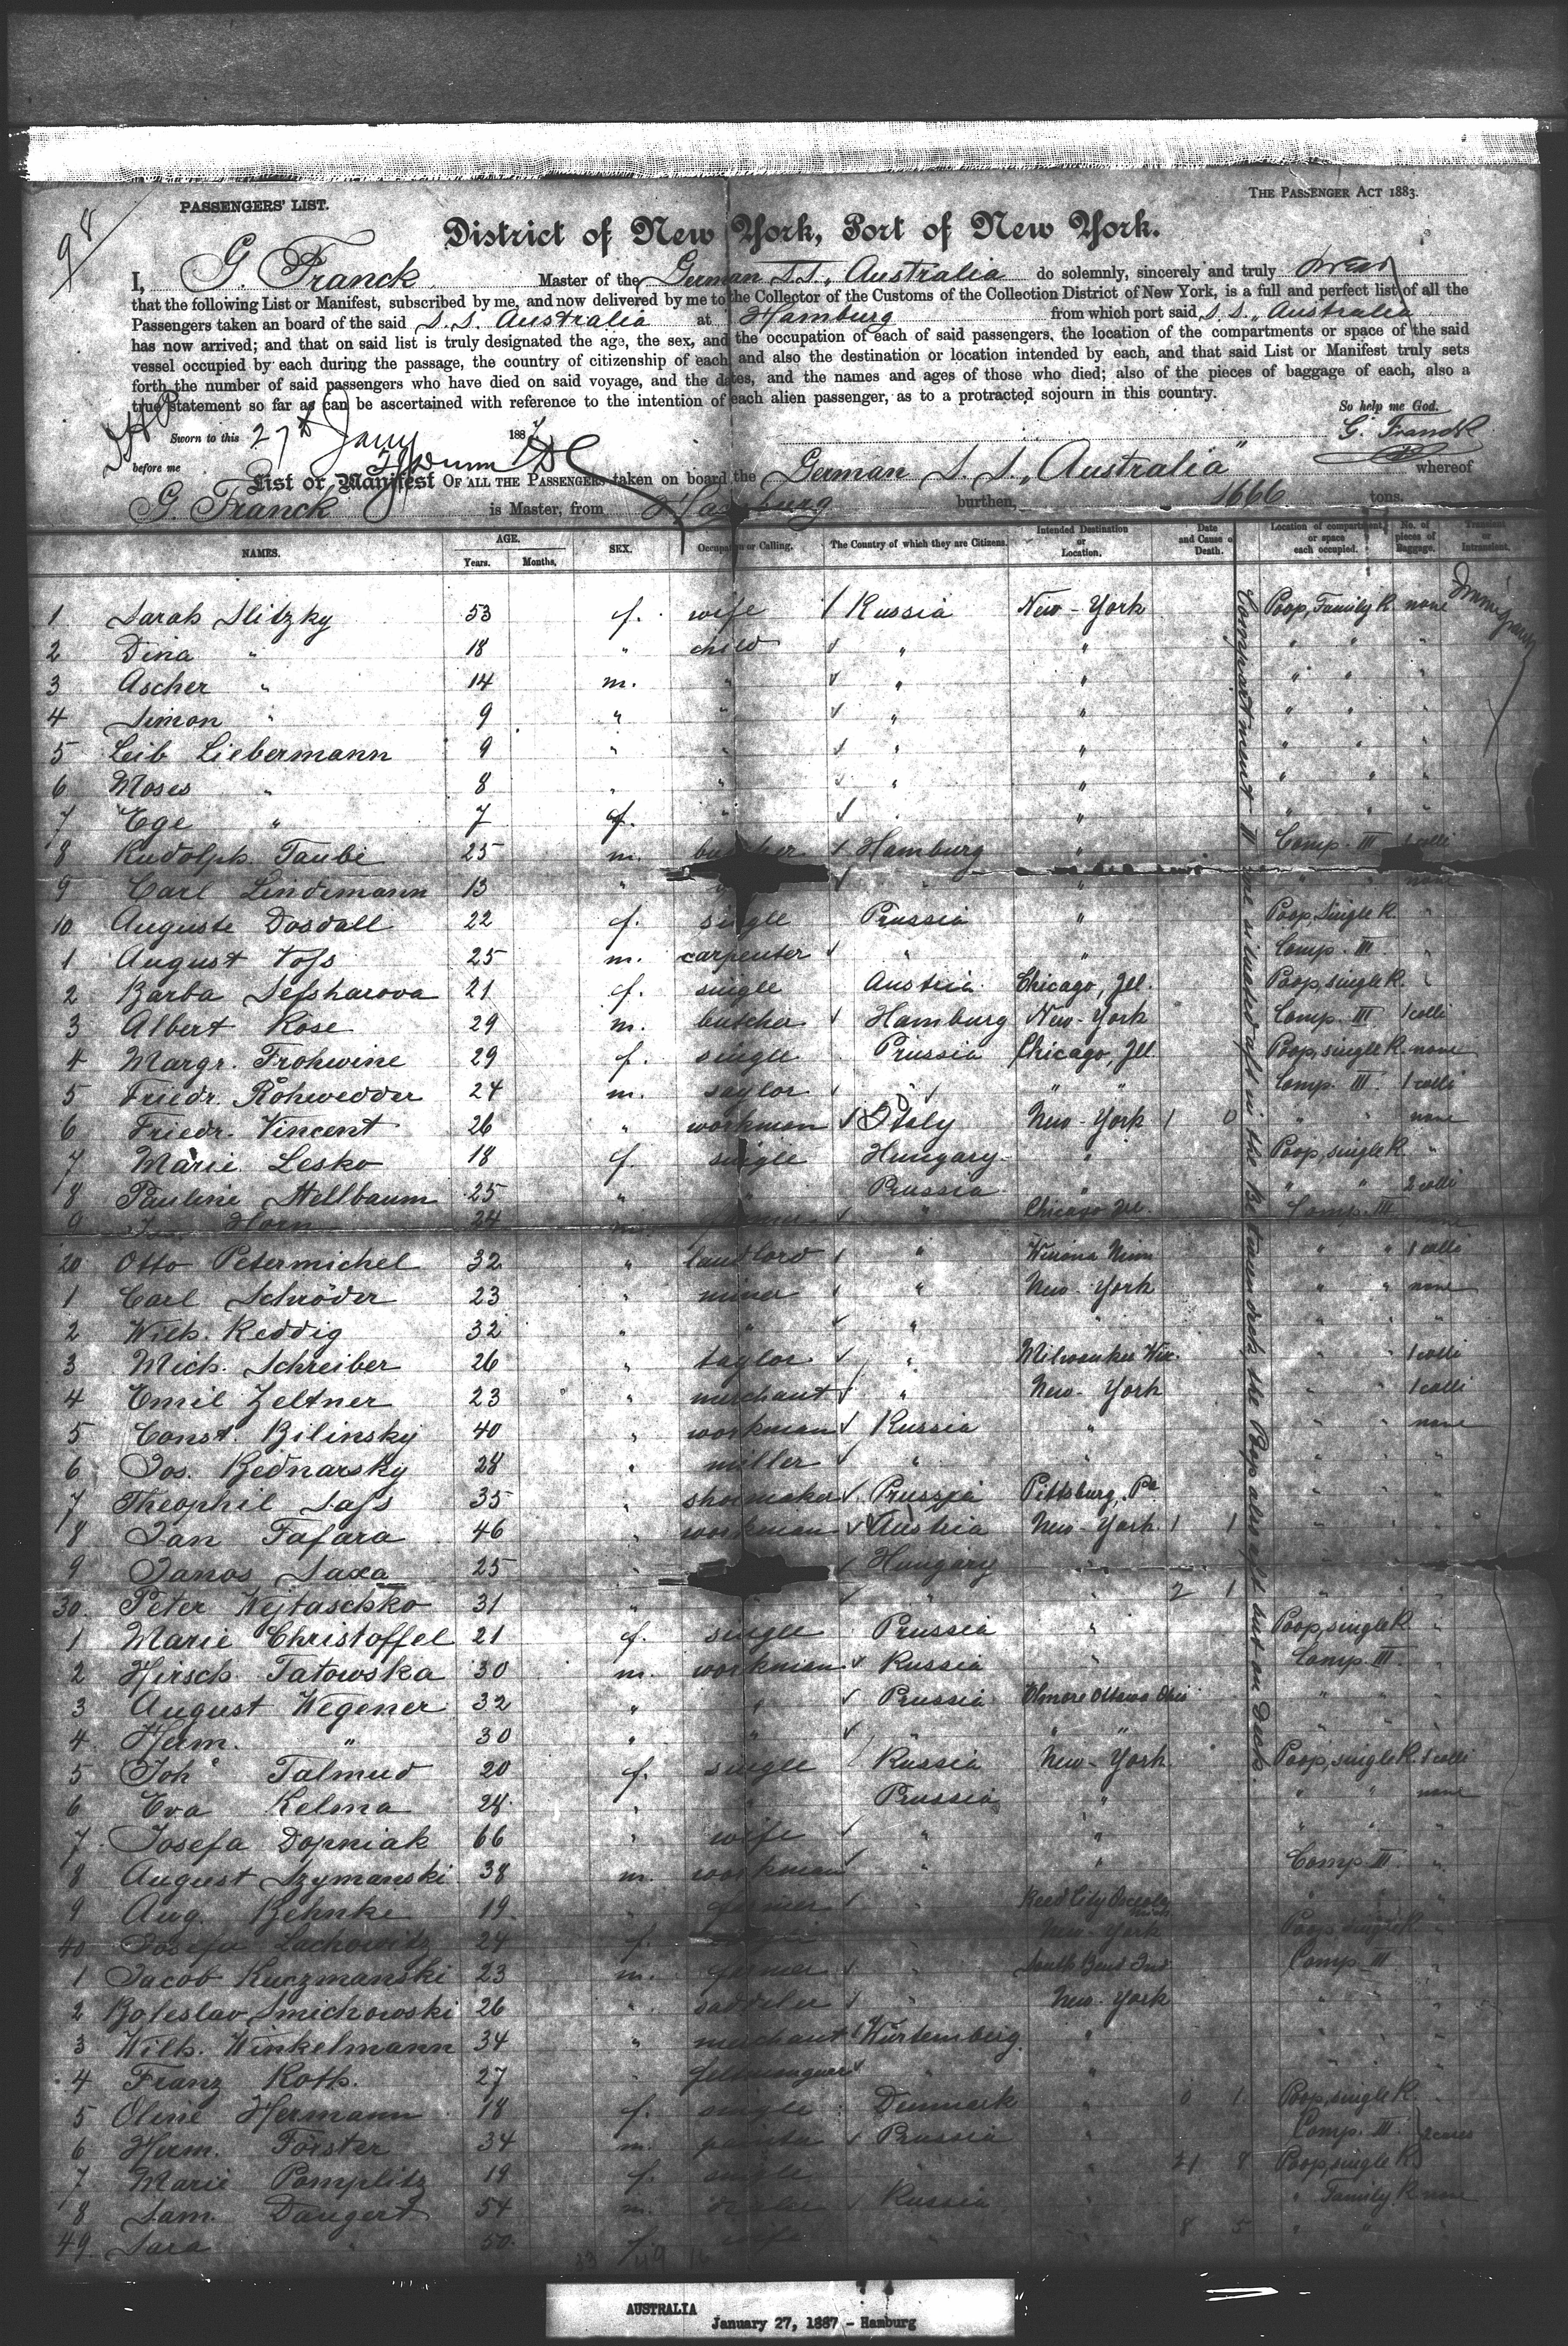 98
PASSENGERS' LIST.
THE PASSENGER ACT 1883.
District of New York, Port of New York.
I, G. Franck Master of the German S.S. „Australia do solemnly, sincerely and truly swear
that the following List or Manifest, subscribed by me, and now delivered by me to the Collector of the Customs of the Collection District of New York, is a full and perfect list of all the
Passengers taken an board of the said S.S. Australia at Hamburg from which port said S.S. „Australia
has now arrived; and that on said list is truly designated the age, the sex, and the occupation of each of said passengers, the location of the compartments or space of the said
vessel occupied by each during the passage, the country of citizenship of each, and also the destination or location intended by each, and that said List or Manifest truly sets
forth the number of said passengers who have died on said voyage, and the dates, and the names and ages of those who died; also of the pieces of baggage of each, also a
true statement so far as can be ascertained with reference to the intention of each alien passenger, as to a protracted sojourn in this country.
So help me God.
Sworn to this 27th Jany 1887
G. Franck
before me
List or Manifest OF ALL THE PASSENGERS taken on board the German S.S. „Australia" whereof
G. Franck is Master, from Hamburg burthen, 1666 tons.
NAMES. AGE. Years. Months. SEX. Occupation or Calling. The Country of which they are Citizens. Intended Destination or Location. Date and Cause of Death. Location of compartment, or space each occupied. No. of pieces of Baggage. Transit or Intransient.
1 Sarah Slitzky 53 f. wife Russia New-York Poop, Family R none
2 Dina " 18 " child " " " " "
3 Ascher " 14 m. " " " " " "
4 Simon " 9 " " " " " " "
5 Leib Liebermann 9 " " " " " " "
6 Moses " 8 " " " " " " "
7 Ege " 7 f. " " " " "
8 Rudolph Taube 25 m. butcher Hamburg " Comp. III 1 colli
9 Carl Lindemann 13 " " " none
10 Auguste Dosdall 22 f. single Prussia " Poop, Single R. "
1 August Voss 25 m. carpenter " " Comp. III "
2 Barba 21 f. single Austria Chicago, Ill. Poop, single R. "
3 Albert Rose 29 m. butcher Hamburg New-York Comp. III 1 colli
4 Margr. Frohwine 29 f. single Prussia Chicago, Ill. Poop, single R. none
5 Friedr. Rohwedder 24 m. saylor " " " Comp. III 1 colli
6 Friedr. Vincent 26 " workman Italy New-York 1 0 " " none
7 Marie Lesko 18 f. single Hungary " Poop, single R. "
8 Pauline Stellbaum 25 " " Prussia " " " 2 colli
9 Horn 24 m. " Chicago Ill. Comp. III none
20 Otto Petermichel 32 " landlord " Winona Minn " " 1 colli
1 Carl Schröder 23 " miner " New-York " " none
2 Wilh. Reddig 32 " " " " " " "
3 Mich. Schreiber 26 " taylor " Milwaukee Wis. " " 1 colli
4 Emil Zeltner 23 " merchant " New-York " " 1 colli
5 Const. Bilinsky 40 " workman Russia " " " none
6 Jos. Bednarsky 28 " miller " " " " "
7 Theophil Sass 35 " shoemaker Prussia Pittsburg, Pa " " "
8 Jan Fafara 46 " workman Austria New-York 1 1 " " "
9 Janos Saxa 25 " Hungary "
30. Peter Wejtaschko 31 " " " 2 1 " " "
1 Marie Christoffel 21 f. single Prussia " Poop, single R "
2 Hirsch Tatowska 30 m. workman Russia " Comp. III "
3 August Wegener 32 " " Prussia Elmore Ottawa Ohio " " "
4. Herm. " 30 " " " " " " " "
5 Joh Talmud 20 f. single Russia New-York Poop, single R. 1 colli
6 Eva Kelma 28 " " Prussia " " " none
7. Josefa Dopniak 66 " wife " " " " "
8 August Szymanski 38 m. workman " " Comp. III "
9 Aug. Behnke 19 " farmer " Reed City Osceola Mich. " " "
40 Josefa Lachowitz 24 f. New-York Poop, single R "
1 Jacob Kuczmanski 23 m. farmer " South Bend Ind Comp. III "
2 Boleslav Smichowski 26 " saddeler " New-York " " "
3 Wilh. Winkelmann 34 " merchant Würtemberg " " " "
4 Franz Roth. 27 " " " " " "
5 Oline Hermann 18 f. single Denmark " 0 1 Poop, single R.
6 Herm. Förster 34 m. painter Prussia " Comp. III 2 cases
7. Marie Pomplitz 19 f. single " " 21 8 Poop, single R
8 Sam. Daugert 54 m. Russia " " Family R none
49. Sara " 50. f. wife " " 8 5 " " "
Compartment II are situated aft in the Betweendeck, the Poop also aft but on Deck.
AUSTRALIA
January 27, 1887 - Hamburg